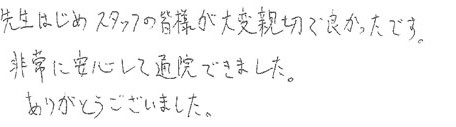 先生はじめスタッフの皆様が大変親切で良かったです。
非常に安心して通院できました。
ありがとうございました。